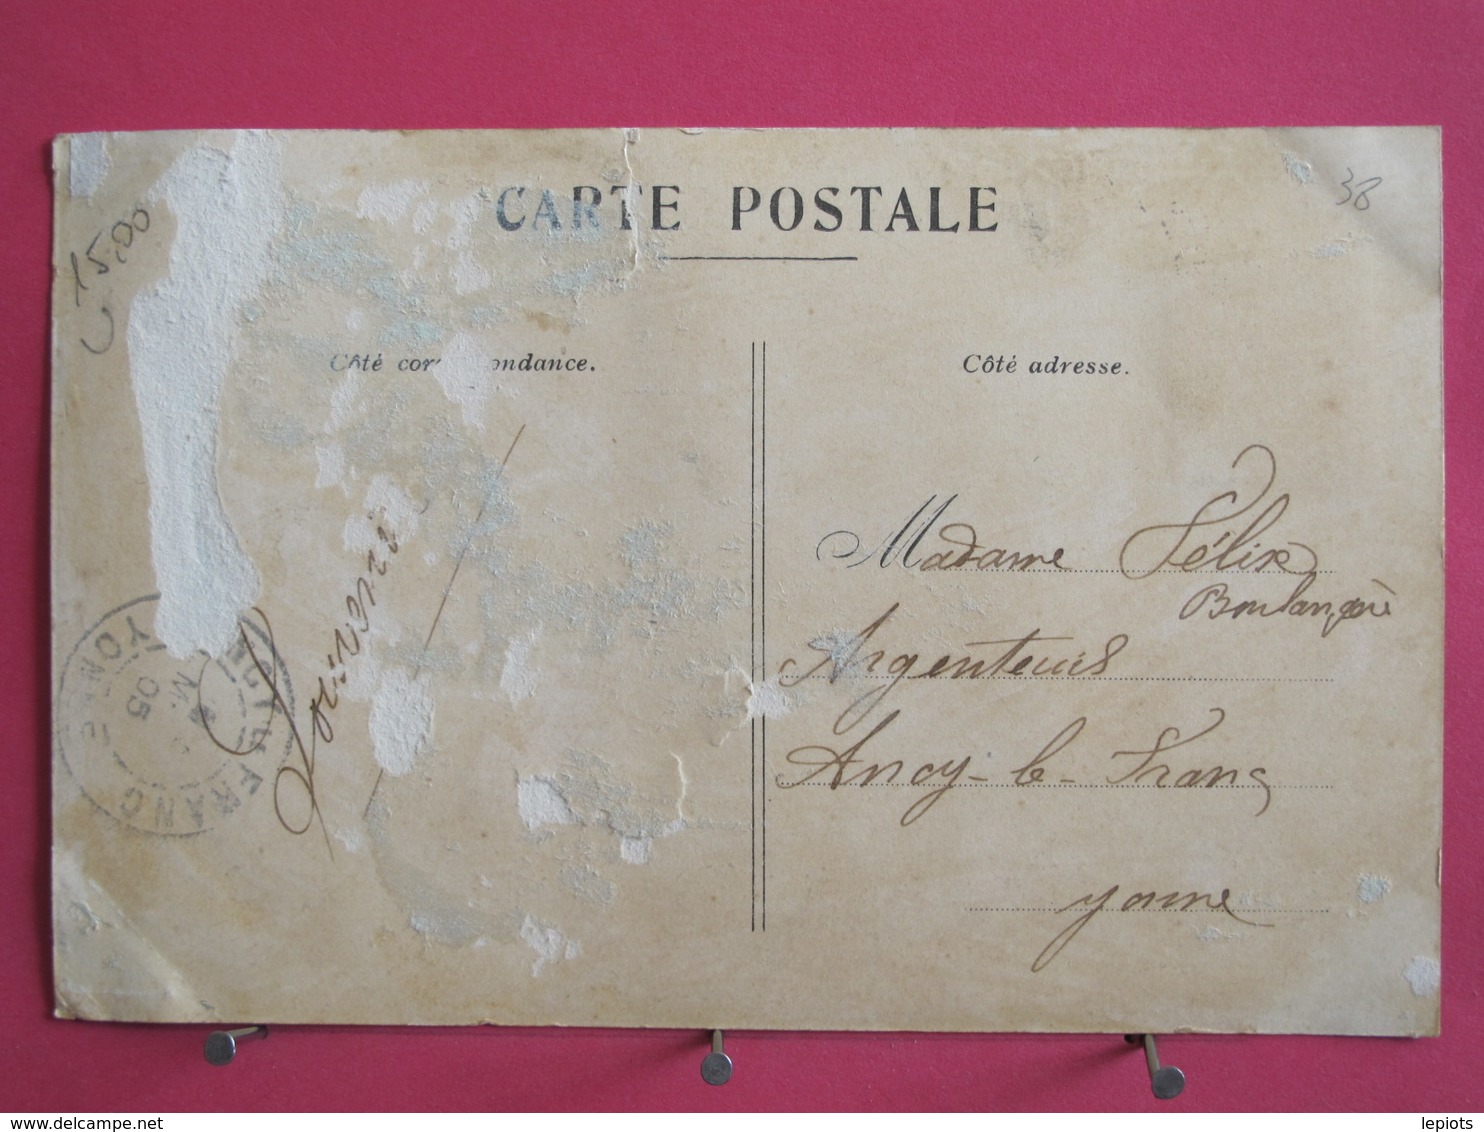 CARTE POSTALE
38
15,00
Côté cor ondance.
Côté adresse.
Souvenir
Madame Félix
Boulangère
Argenteuil
Ancy-le-Franc
Yonne
YONNE
05
FRANC
lepiots